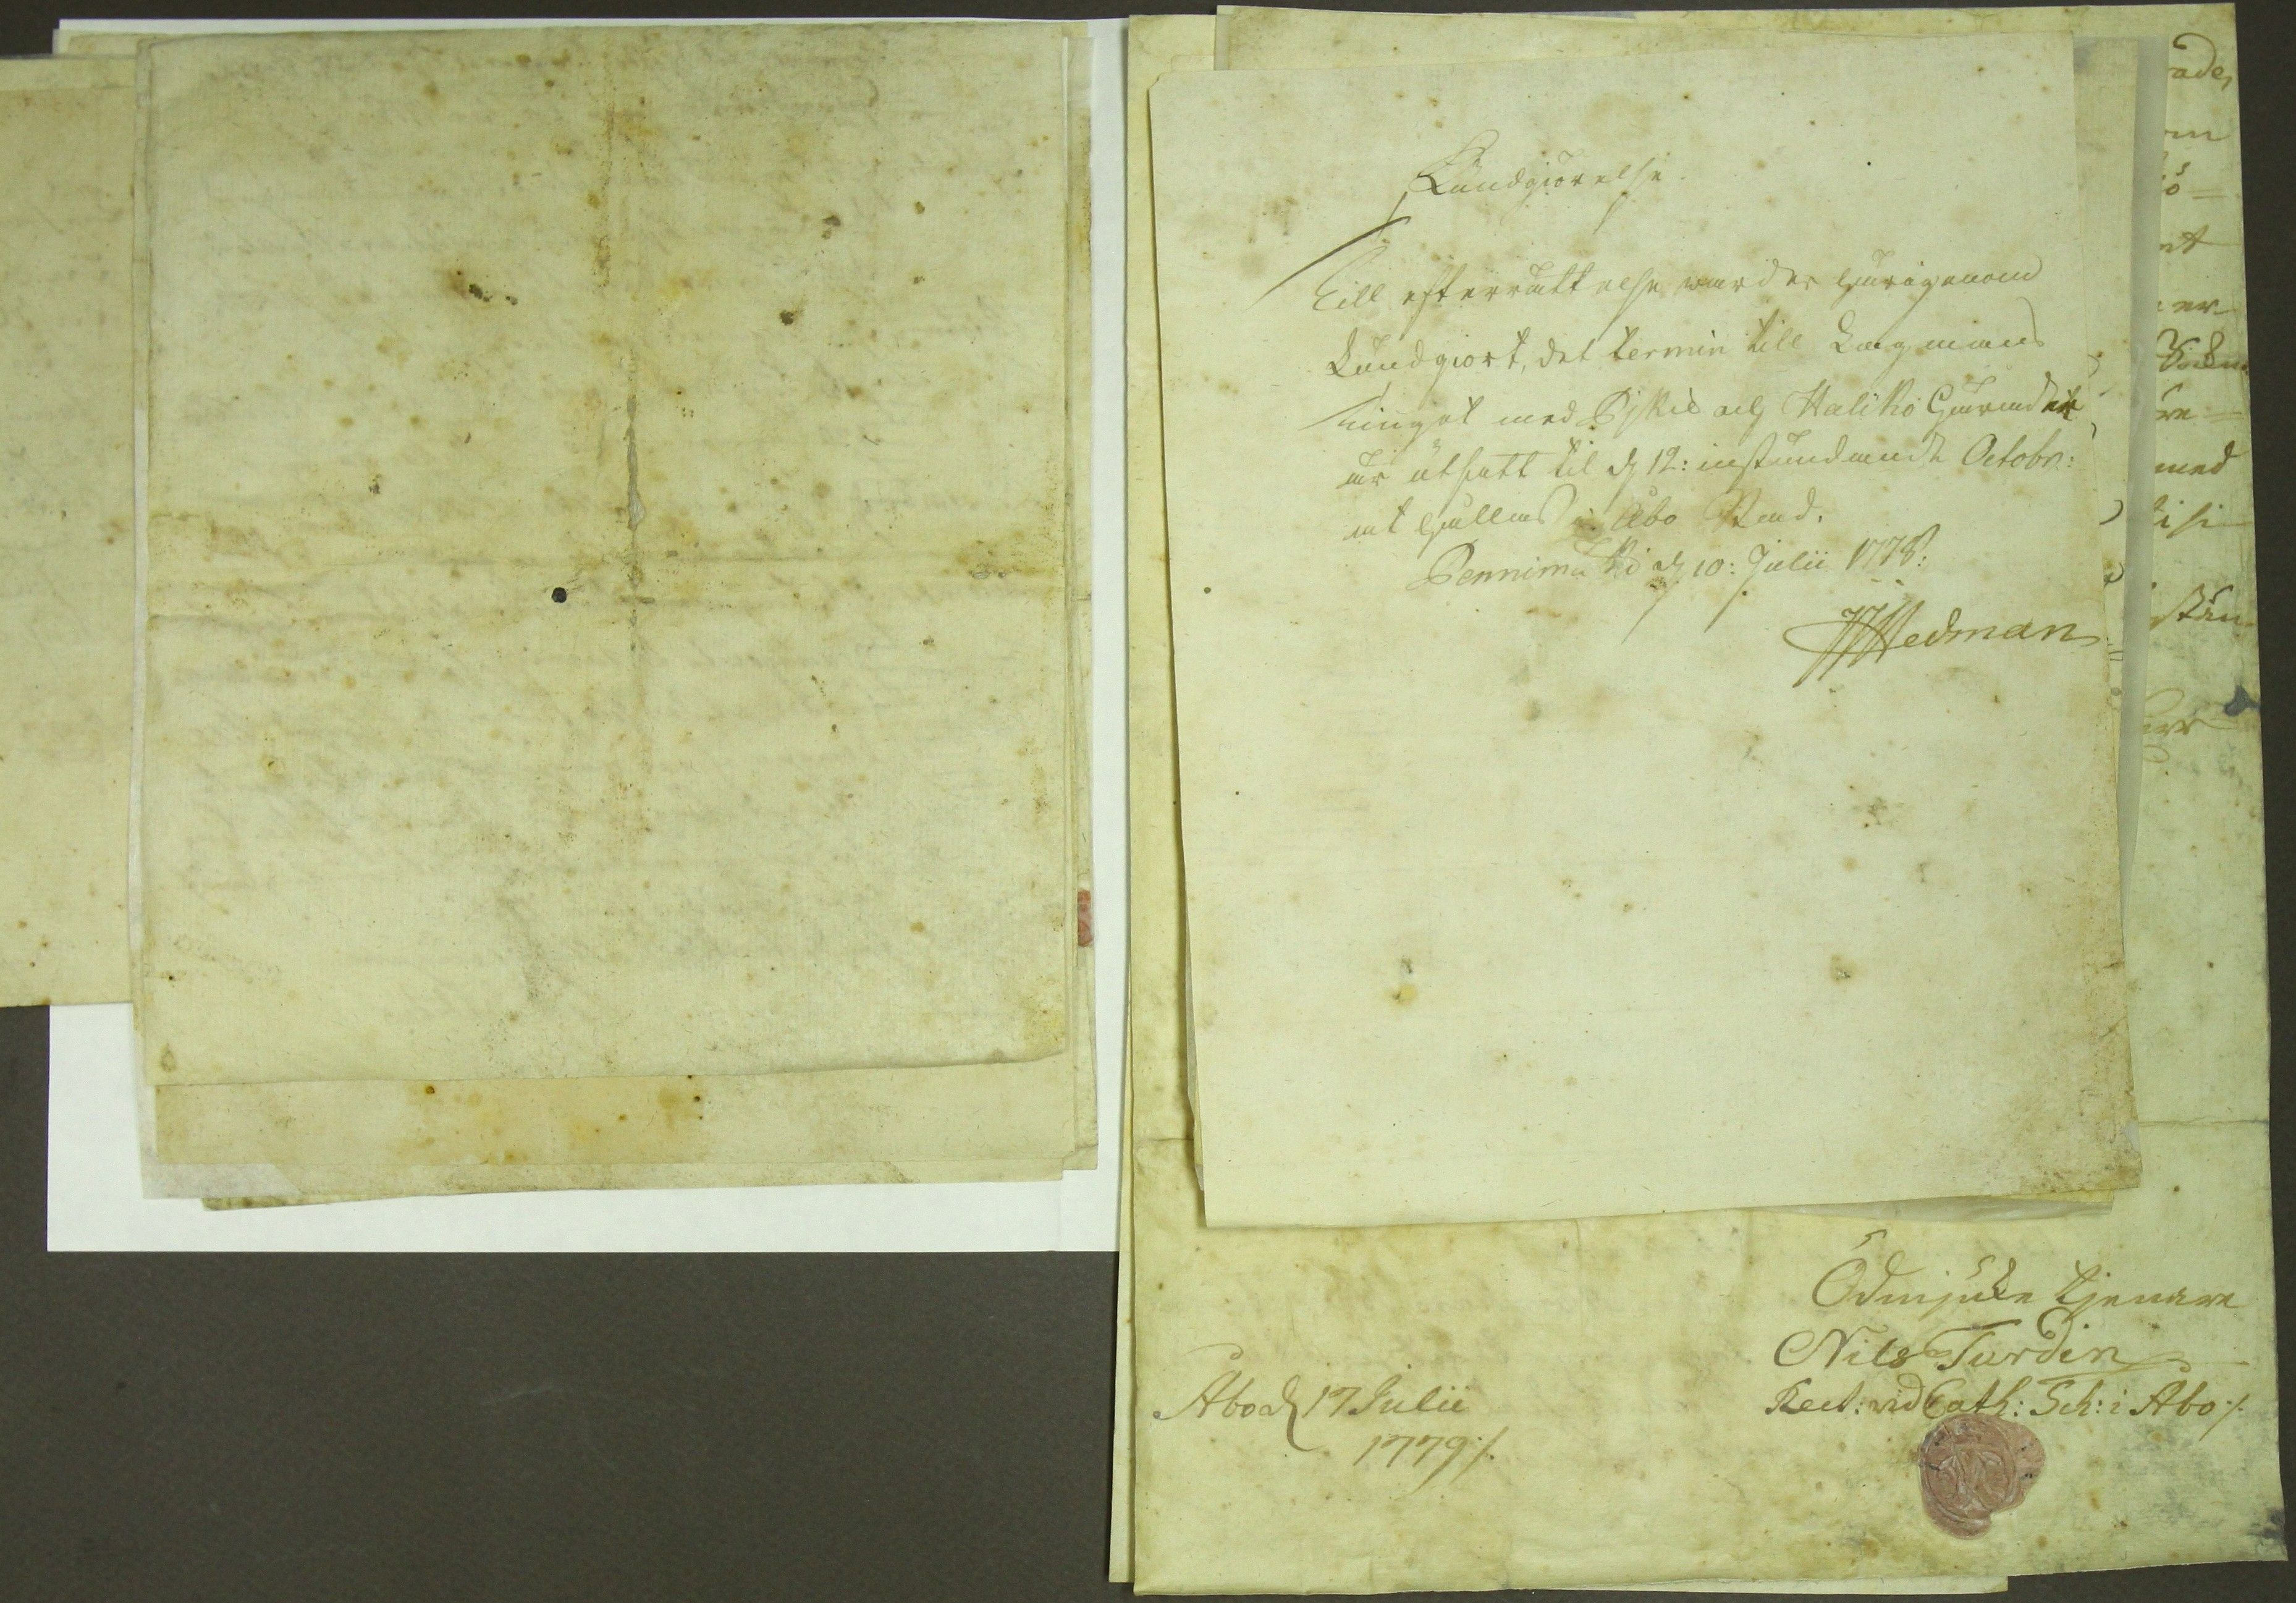 Kundgiörelse
Till efterrättelse warder härigenom
kundgiort, det termin till Lagmans
Tinget med Pjkié och Haliko Härader
är utsatt til d. 12: instundande Octobr:
at hållas i Åbo Stad.
d. 10: Julii 1778:
Hedman
Ödmjuke tjenare
Nils Turdin
Rect: vid Cath: Sch: i Åbo ./.
Åbo d. 17 Julii
1779 ./.
rade,
om
iö=
et
med